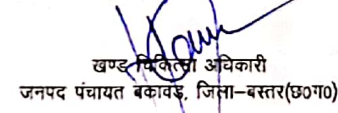 खण्ड चिकित्सा अधिकारी
जनपद पंचायत बकावंड, जिला-बस्तर(छ०ग०)